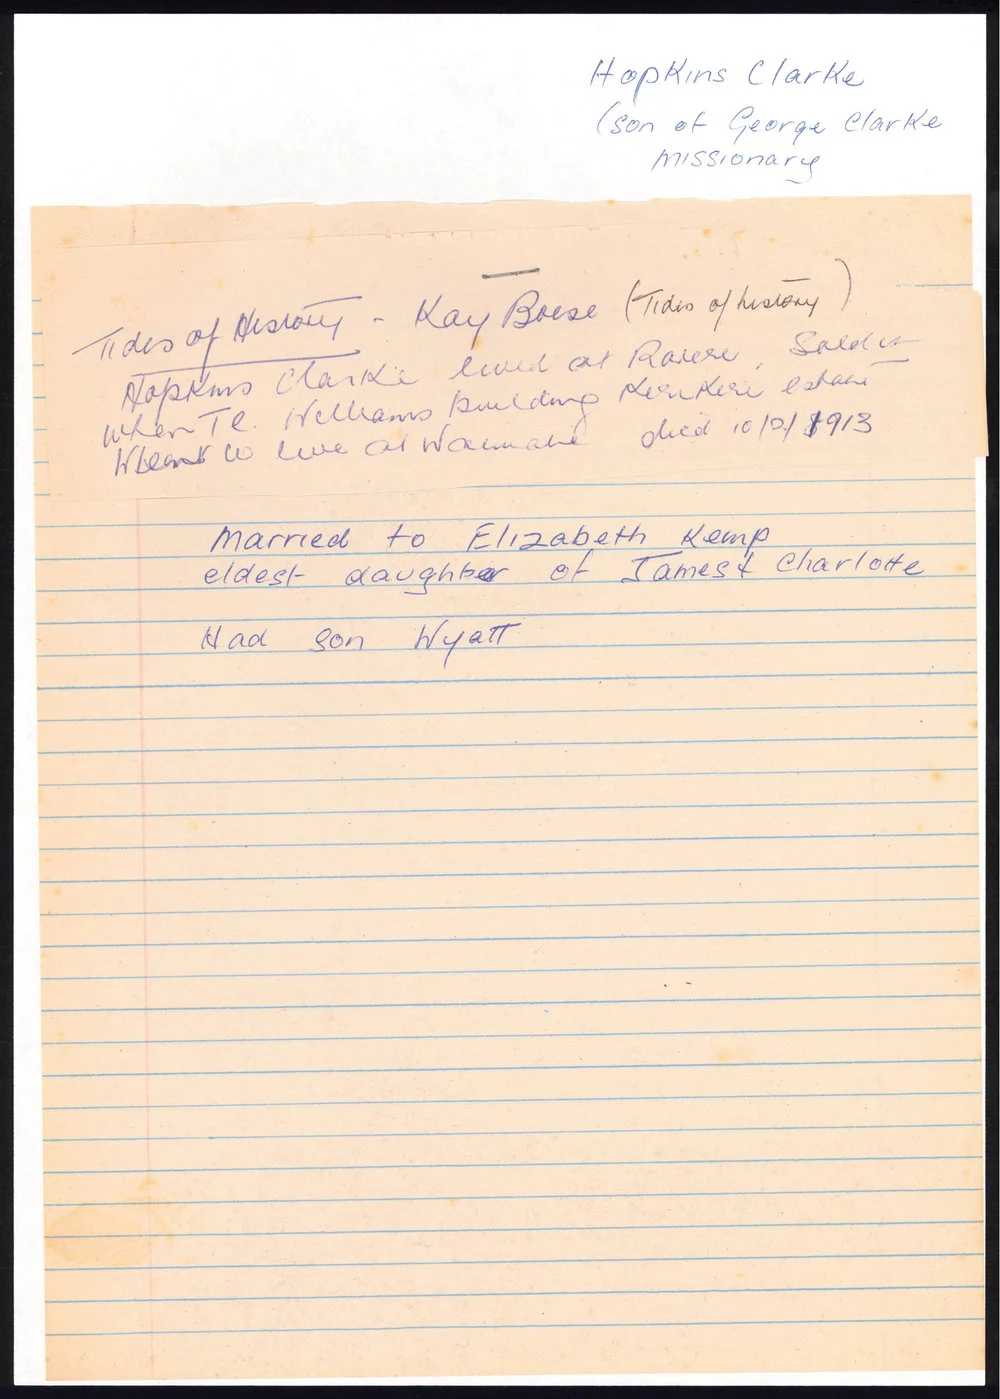 Hopkins Clarke
(son of George Clarke
missionary
Tides of History - Kay Boese (Tides of history)
Hopkins Clarke lived at Rarere, Sold it
when T.C. Williams building Keri Keri estate
Went to live at Waimate died 10/2/1913
Married to Elizabeth Kemp
eldest daughter of James & Charlotte
Had son Wyatt